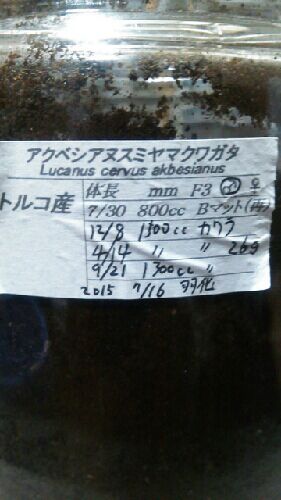 アクベシアヌスミヤマクワガタ
Lucanus cervus akbesianus
トルコ産
体長 mm F3 ♂ ♀
7/30 800cc Bマット(再)
12/8 1300cc カワラ
4/14 〃 〃 26g
9/21 1300cc 〃
2015 7/16 羽化